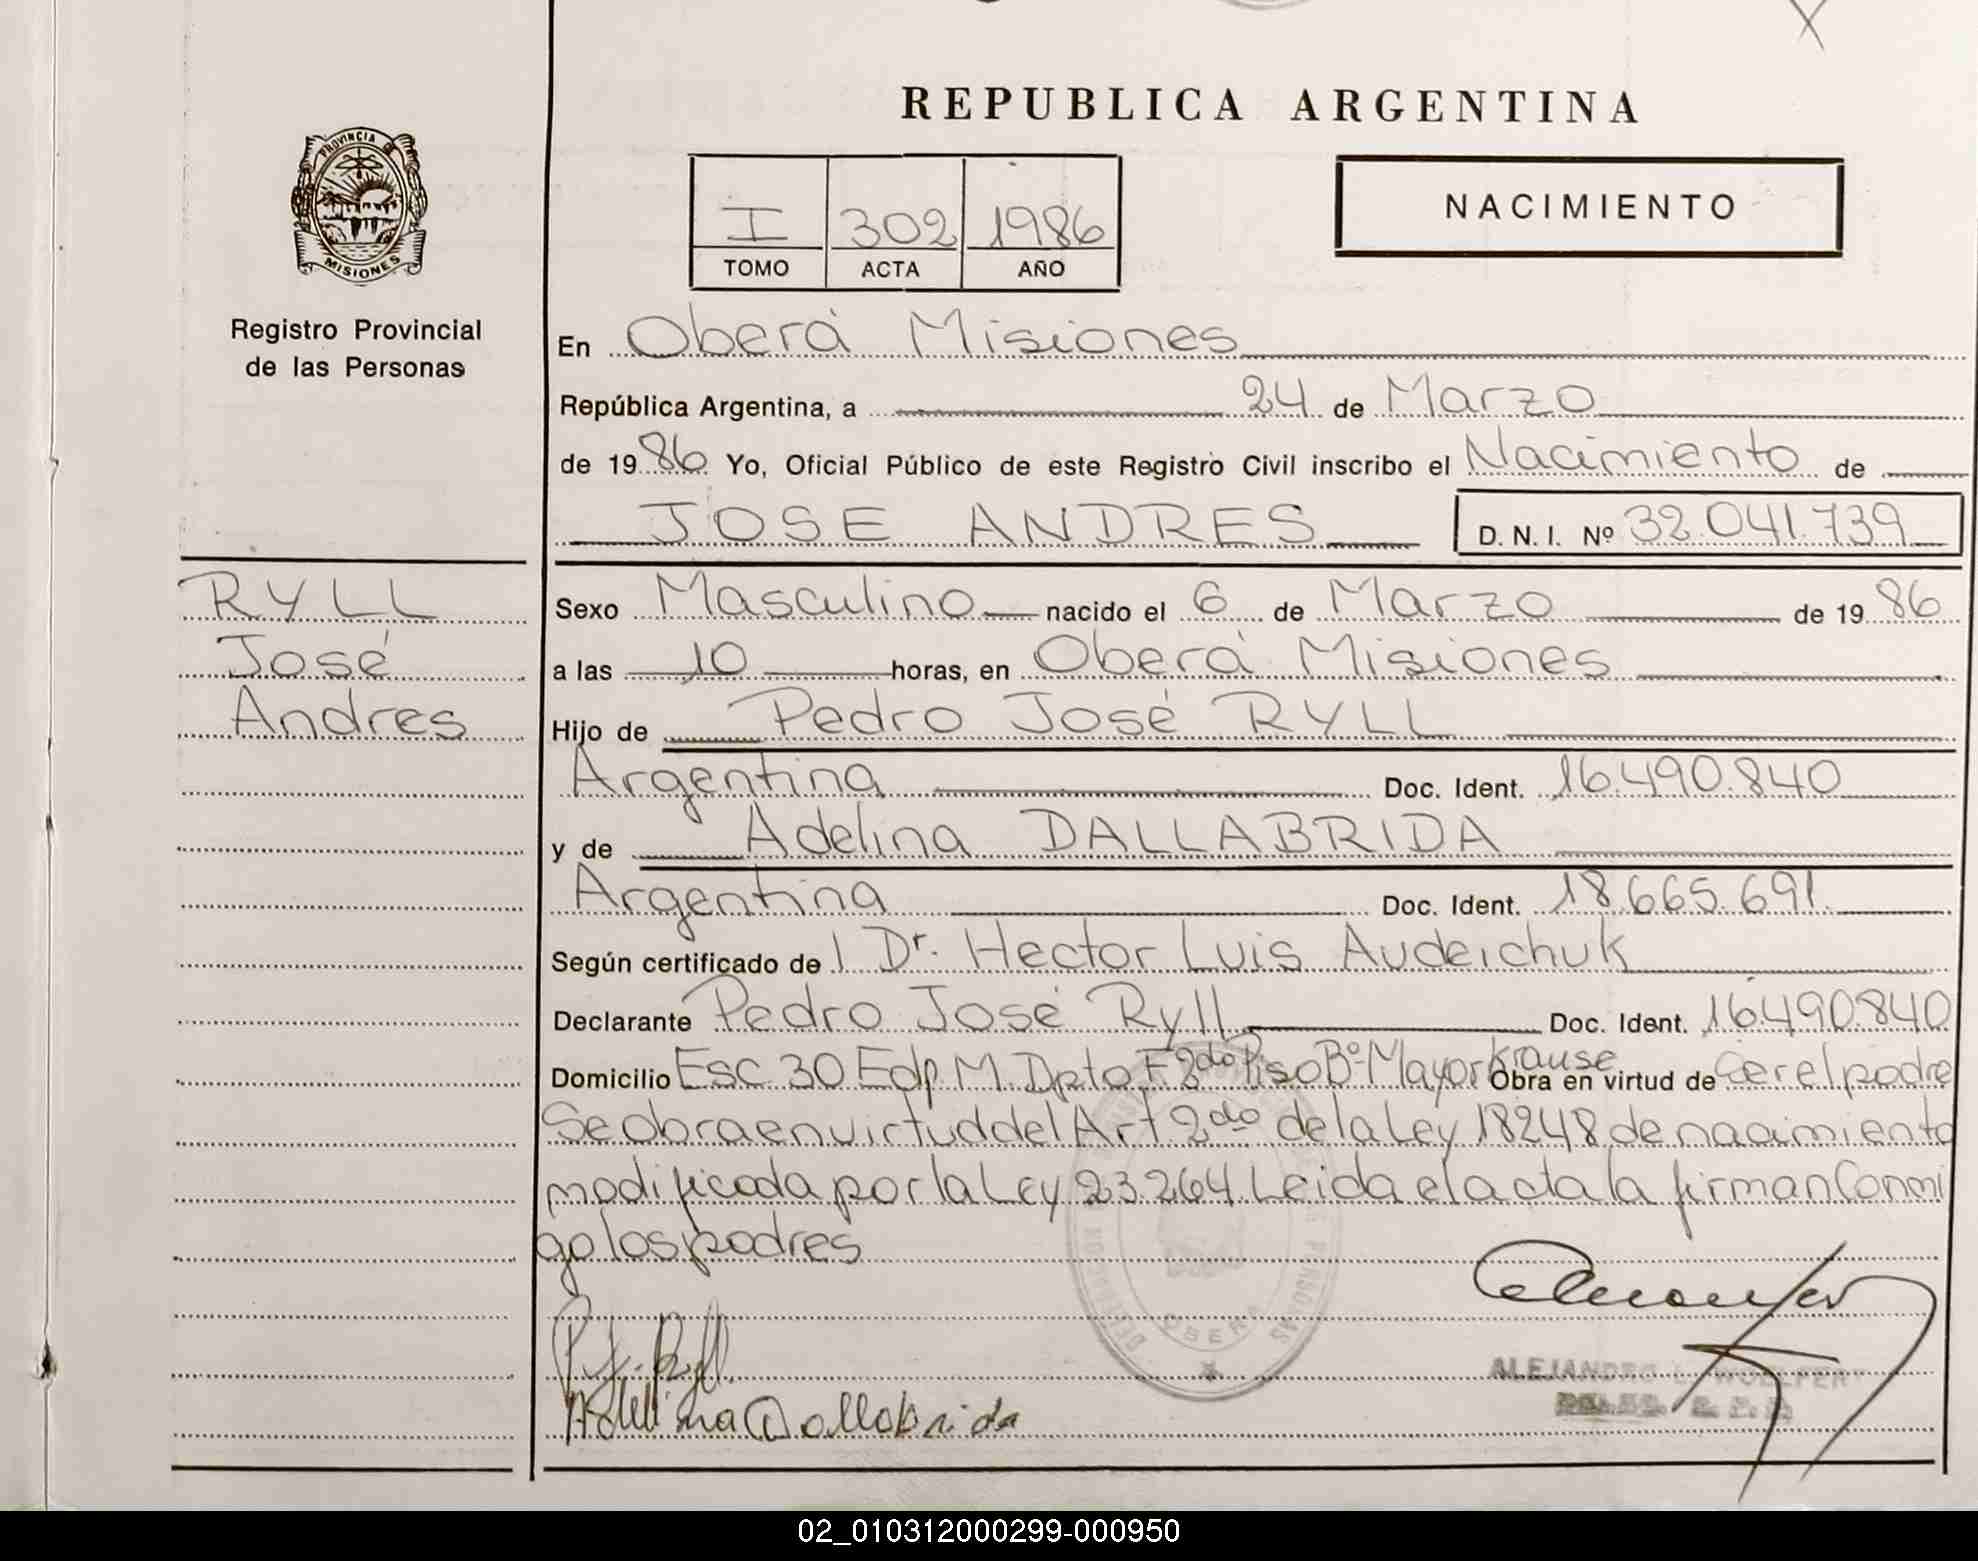 REPUBLICA ARGENTINA
PROVINCIA DE
MISIONES
Registro Provincial
de las Personas
I 302 1986
TOMO ACTA AÑO
NACIMIENTO
En Oberá Misiones
República Argentina, a 24 de Marzo
de 1986 Yo, Oficial Público de este Registro Civil inscribo el Nacimiento de
JOSE ANDRES D. N. I. Nº 32.041.739
RYLL
José
Andres
Sexo Masculino nacido el 6 de Marzo de 1986
a las 10 horas, en Oberá Misiones
Hijo de Pedro José RYLL
Argentina Doc. Ident. 16.490.840
y de Adelina DALLABRIDA
Argentina Doc. Ident. 18.665.691
Según certificado de l Dr. Hector Luis Audeichuk
Declarante Pedro José Ryll Doc. Ident. 16.490.840
Domicilio Esc 30 Edp. M. Dpto F 2do Piso Bº Mayor Krause Obra en virtud de Ser el padre
Se obra en virtud del Art 2do de la Ley 18248 de nacimiento
modificada por la Ley 23.264. Leida el acta la firman Conmi
go los padres
P. J. Ryll.
Adelina Dallabrida
OBERA
ALEJANDRO L. WOELFERT
02_010312000299-000950